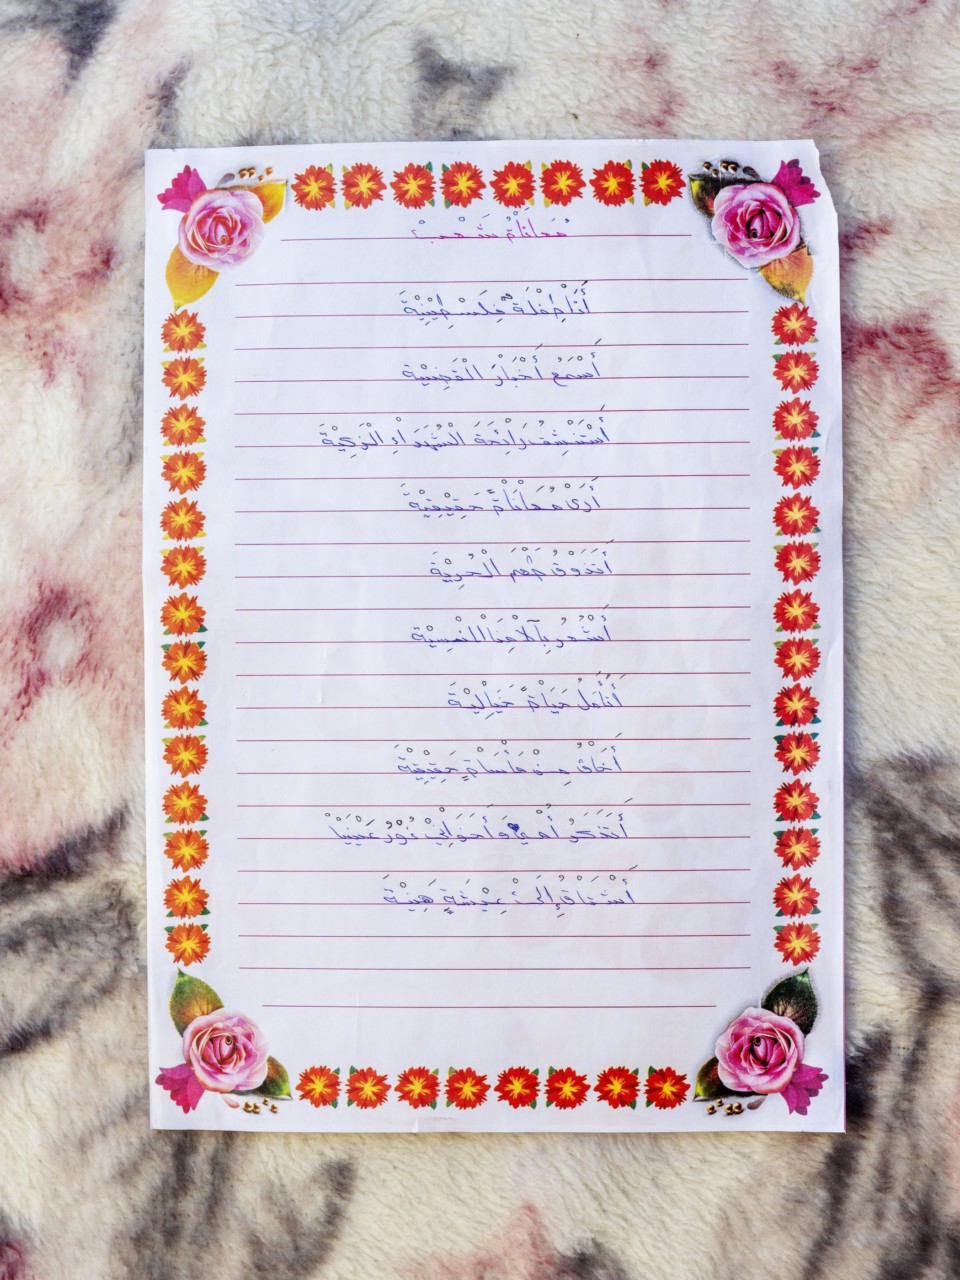 مُعَانَاةُ شَعْبْ
أَنَا طِفْلَةٌ فِلَسْطِيْنِيْةَ
أَسْمَعُ أَخْبَارُ الْقَضِيْيَةَ
أَسْتَنْشِقُ رَائِحَةَ الْشُهَدَاْءِ الْزَكِيْةَ
أَرَىْ مُعَانَاْةً حَقِيْقِيْةَ
أَتَذَوْقُ طَعْمَ الْحُرِيْةَ
أَشْعُرُ بِآلَاْمِنَا الْنَفْسِيْةَ
أَتَأَمَلُ حَيَاْةً خَيَاْلِيْةَ
أَخَاْفُ مِنْ مَأْسَاْةٍ حَقِيْقِيْةَ
أَتَذَكَرُ أُمْيْ وَأَخَوَاْتِيْ نُوْرُ عَيْنَيْاْ
أَشْتَاْقُ إِلَىْ عِيْشَةٍ هَنِيْةَ